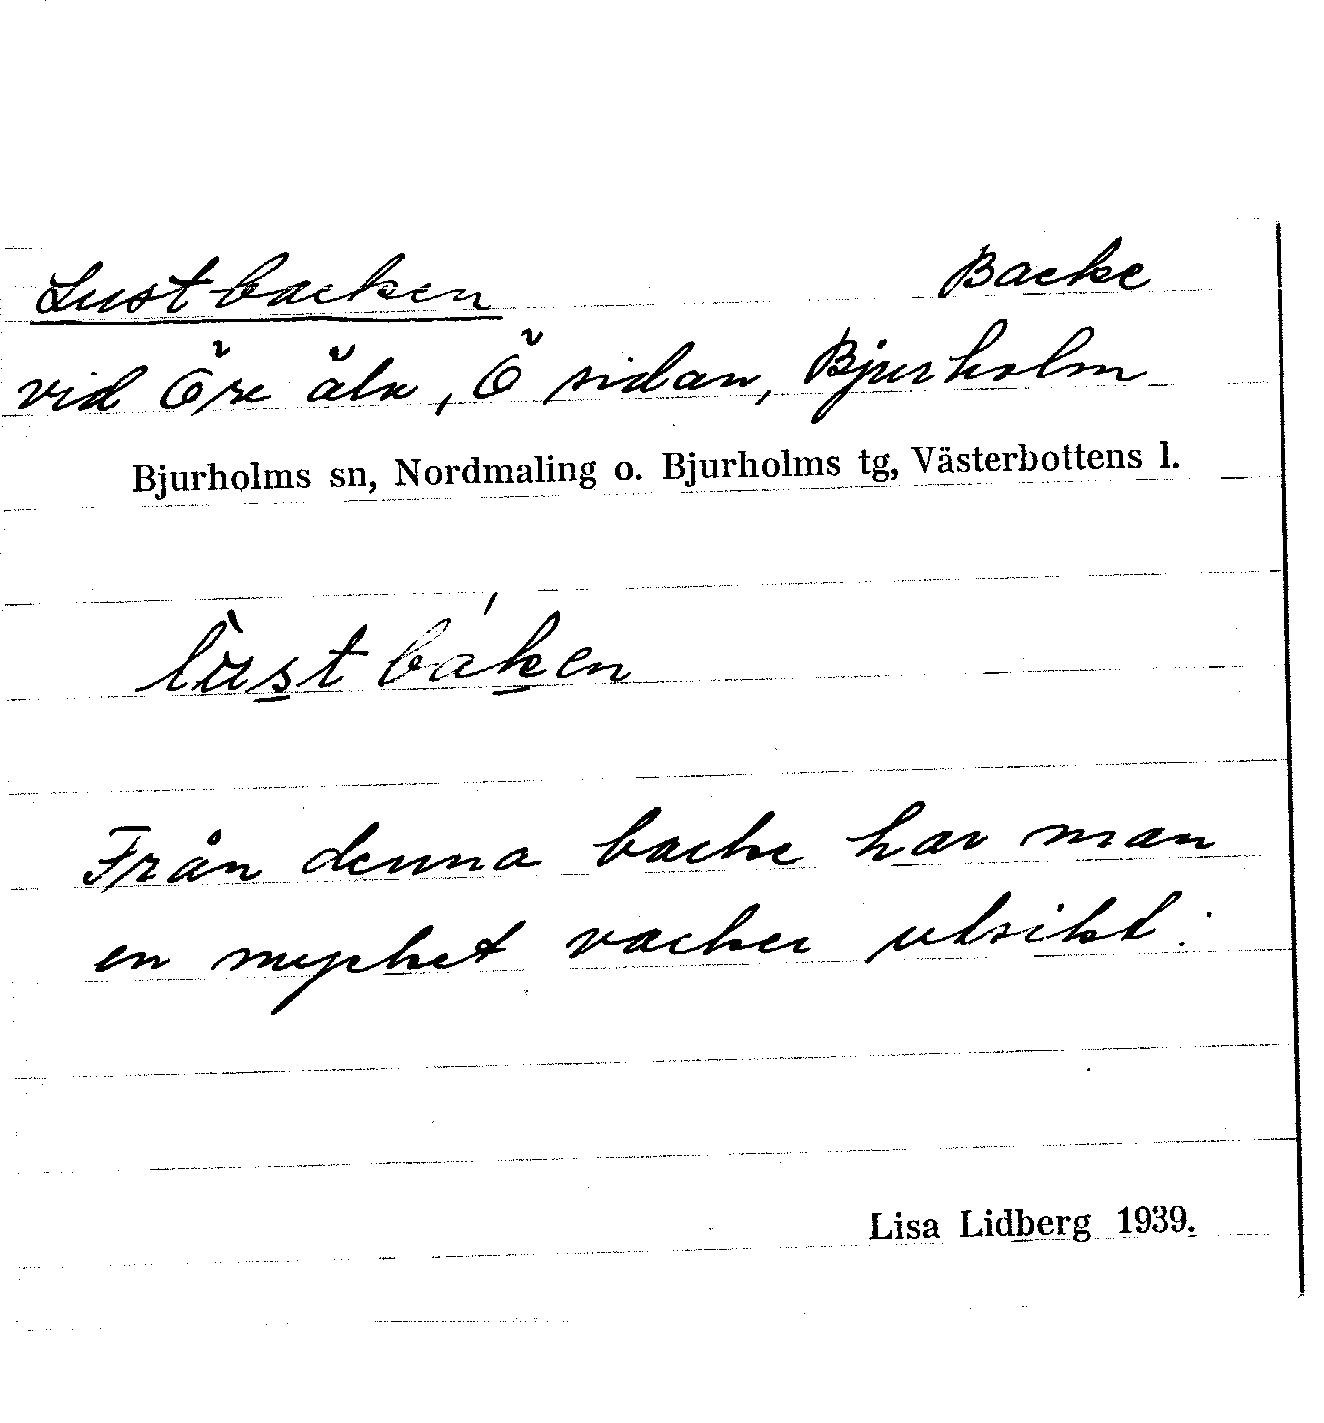 Lustbacken Backe
vid Öre älv, Ö sidan, Bjurholm
Bjurholms sn, Nordmaling o. Bjurholms tg, Västerbottens l.
lùstbáken
Från denna backe har man
en mycket vacker utsikt.
Lisa Lidberg 1939.